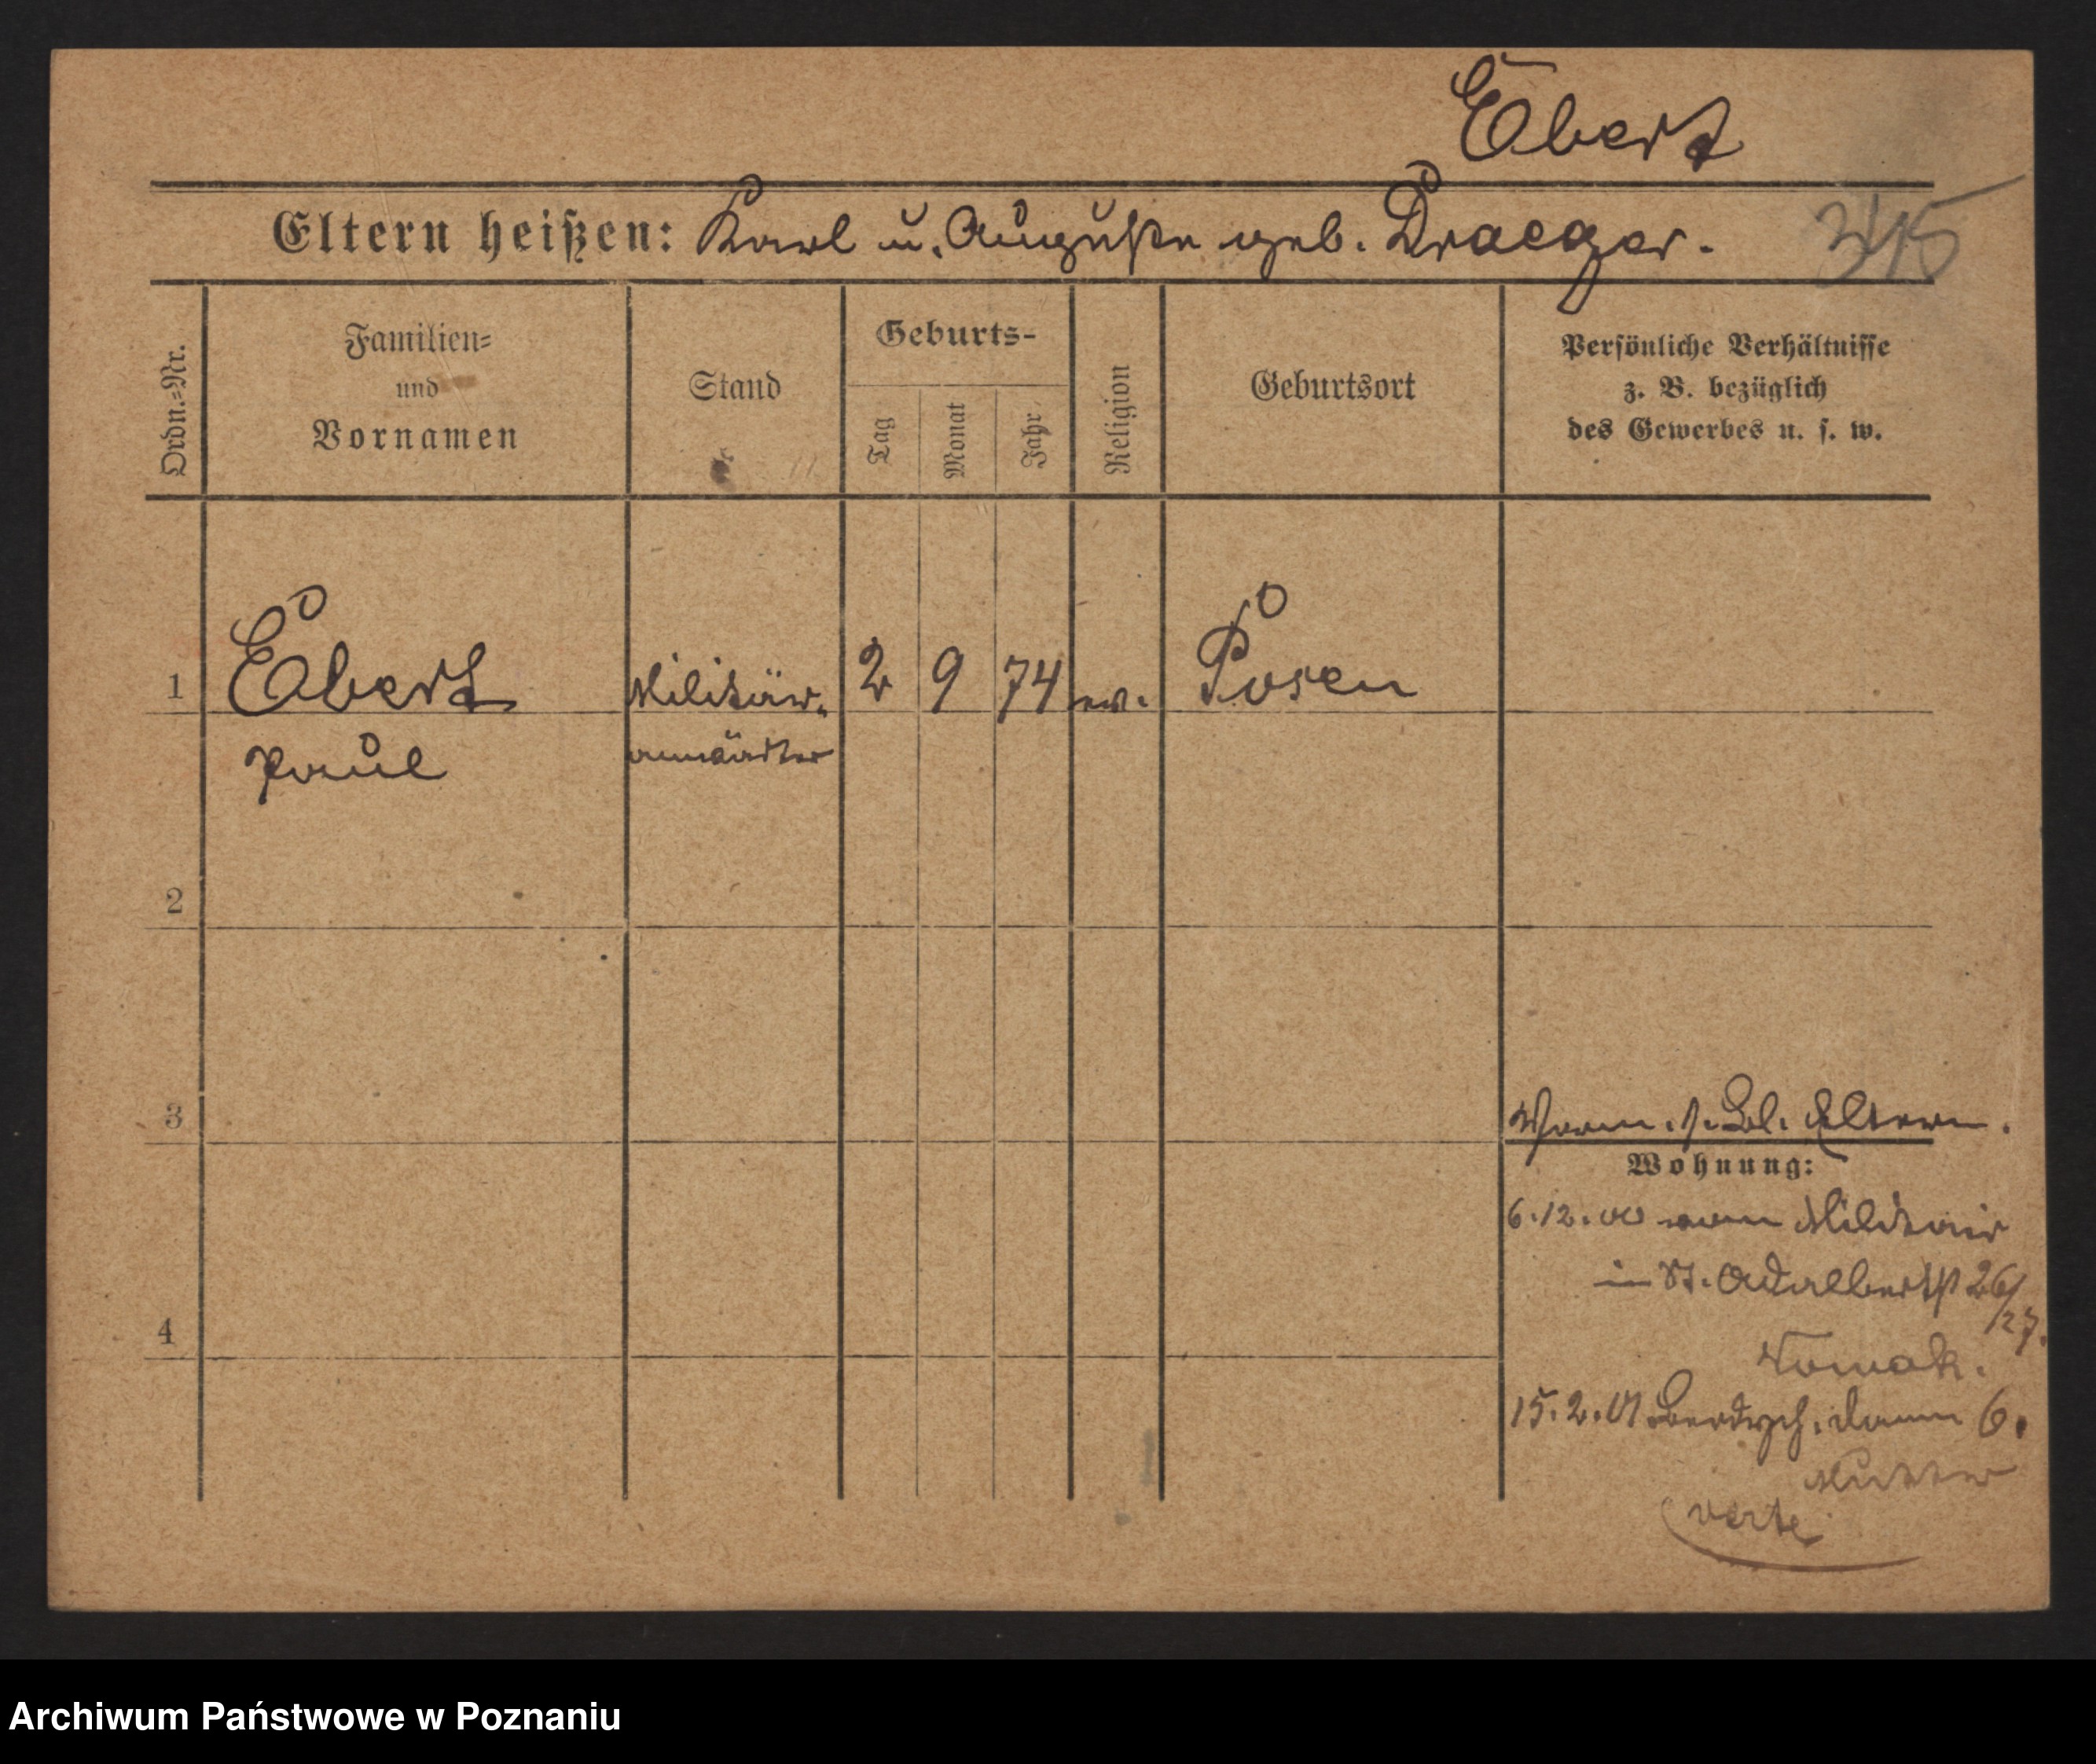 Ebert
Eltern heißen: Karl u. Auguste geb. Draeger.
345
Ordn.=Nr.
Familien=
und
Vornamen
Stand
Geburts-
Tag
Monat
Jahr
Religion
Geburtsort
Persönliche Verhältnisse
z. B. bezüglich
des Gewerbes u. s. w.
1 Ebert Militär- 2 9 74 ev. Posen
Paul anwärter
2
3
s. Bl. Eltern.
Wohnung:
6.12.00 vom Militair
in St. Adalbertst 26/27.
4
Nowak.
15.2.01 Berdych. damm 6.
Mutter
verte
Archiwum Państwowe w Poznaniu